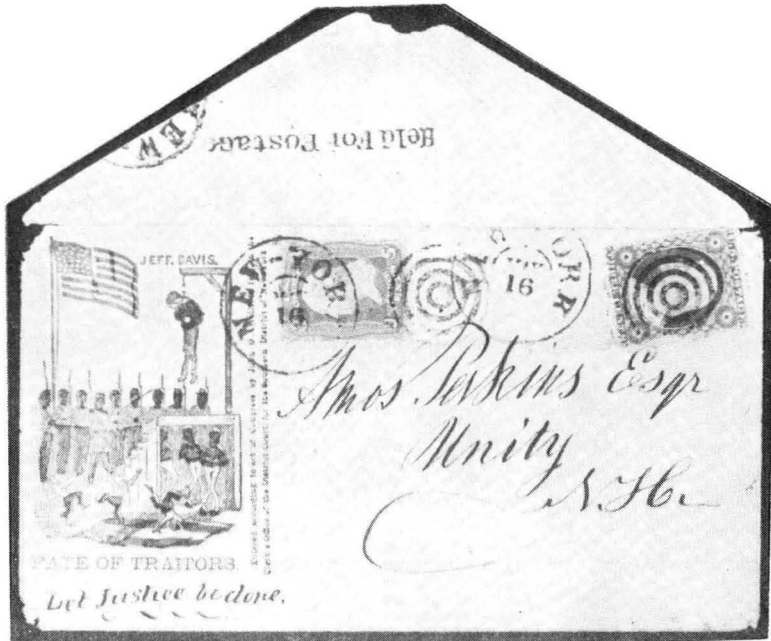 Held For Postage
JEFF. DAVIS.
NEW YORK
16
YORK
16
Amos Perkins Esqr
Unity
N.H.
FATE OF TRAITORS.
Let Justice be done.